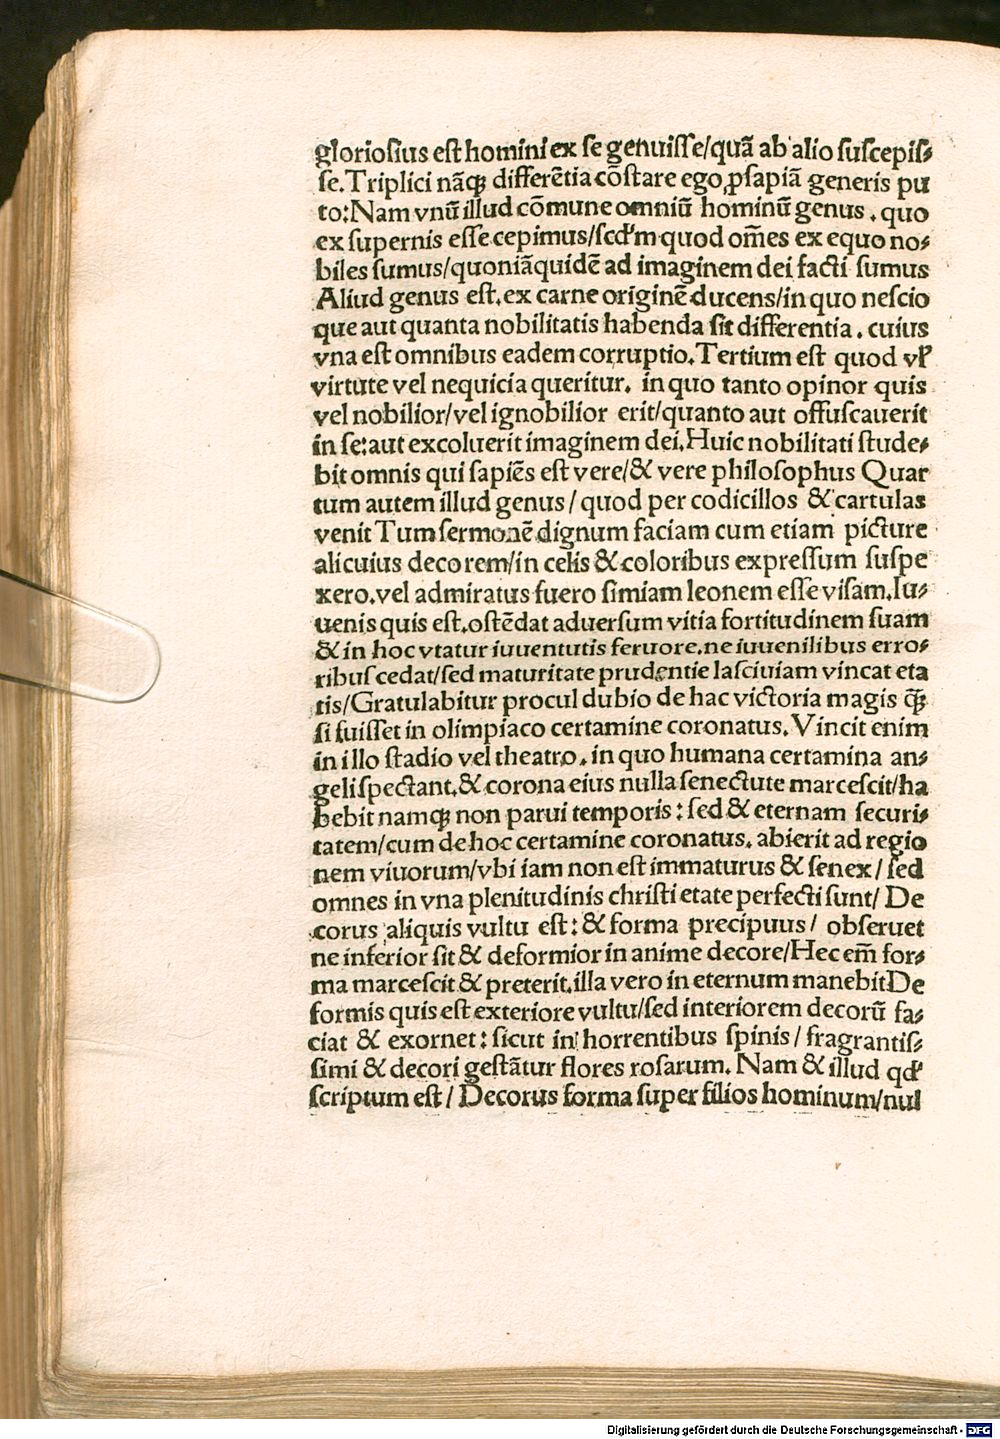 gloriosius est homini ex se genuisse/quā ab alio suscepis⸗
se.Triplici nāqꝫ differētia cōstare ego ꝓsapiā generis pu
to:Nam vnū illud cōmune omniū hominū genus . quo
ex supernis esse cepimus/scd'm quod om̄es ex equo no⸗
biles sumus/quoniāquidē ad imaginem dei facti sumus
Aliud genus est.ex carne originē ducens/in quo nescio
que aut quanta nobilitatis habenda sit differentia . cuius
vna est omnibus eadem corruptio.Tertium est quod vł
virtute vel nequicia queritur. in quo tanto opinor quis
vel nobilior/vel ignobilior erit/quanto aut offuscauerit
in se:aut excoluerit imaginem dei.Huic nobilitati stude⸗
bit omnis qui sapiēs est vere/& vere philosophus Quar
tum autem illud genus / quod per codicillos & cartulas
venit Tum sermonē dignum faciam cum etiam picture
alicuius decorem/in celis & coloribus expressum suspe
xero.vel admiratus fuero simiam leonem esse visam.Iu⸗
uenis quis est.ostēdat aduersum vitia fortitudinem suam
& in hoc vtatur iuuentutis feruore.ne iuuenilibus erro⸗
ribus cedat/sed maturitate prudentie lasciuiam vincat eta
tis/Gratulabitur procul dubio de hac victoria magis q̄ꝫ
si fuisset in olimpiaco certamine coronatus. Vincit enim
in illo stadio vel theatro . in quo humana certamina an⸗
geli spectant.& corona eius nulla senectute marcescit/ha
bebit namqꝫ non parui temporis : sed & eternam securi⸗
tatem/cum de hoc certamine coronatus. abierit ad regio
nem viuorum/vbi iam non est immaturus & senex / sed
omnes in vna plenitudinis christi etate perfecti sunt/ De
corus aliquis vultu est : & forma precipuus / obseruet
ne inferior sit & deformior in anime decore/Hec em̄ for⸗
ma marcescit & preterit.illa vero in eternum manebitDe
formis quis est exteriore vultu/sed interiorem decorū fa⸗
ciat & exornet : sicut in horrentibus spinis / fragrantis⸗
simi & decori gestātur flores rosarum. Nam & illud qd'
scriptum est / Decorus forma super filios hominum/nul
Digitalisierung gefördert durch die Deutsche Forschungsgemeinschaft - DFG